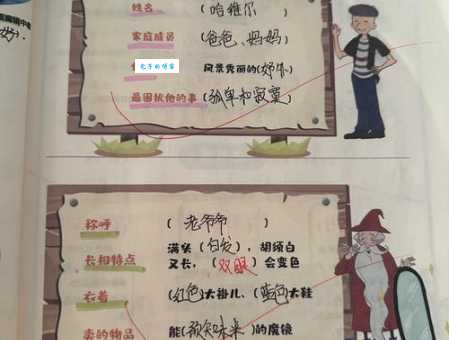 妈).
姓名 (哈维尔)
家庭成员 (爸爸、妈妈)
老于的博客 风景秀丽的(郊外)
最困扰他的事 (孤单和寂寞)
称呼 (老爷爷)
满头(白发),胡须白
长相特点 又长,(双眼)会变色
衣着 (红色)大褂儿、(蓝色)大鞋
卖的物品 能(预知未来)的魔镜